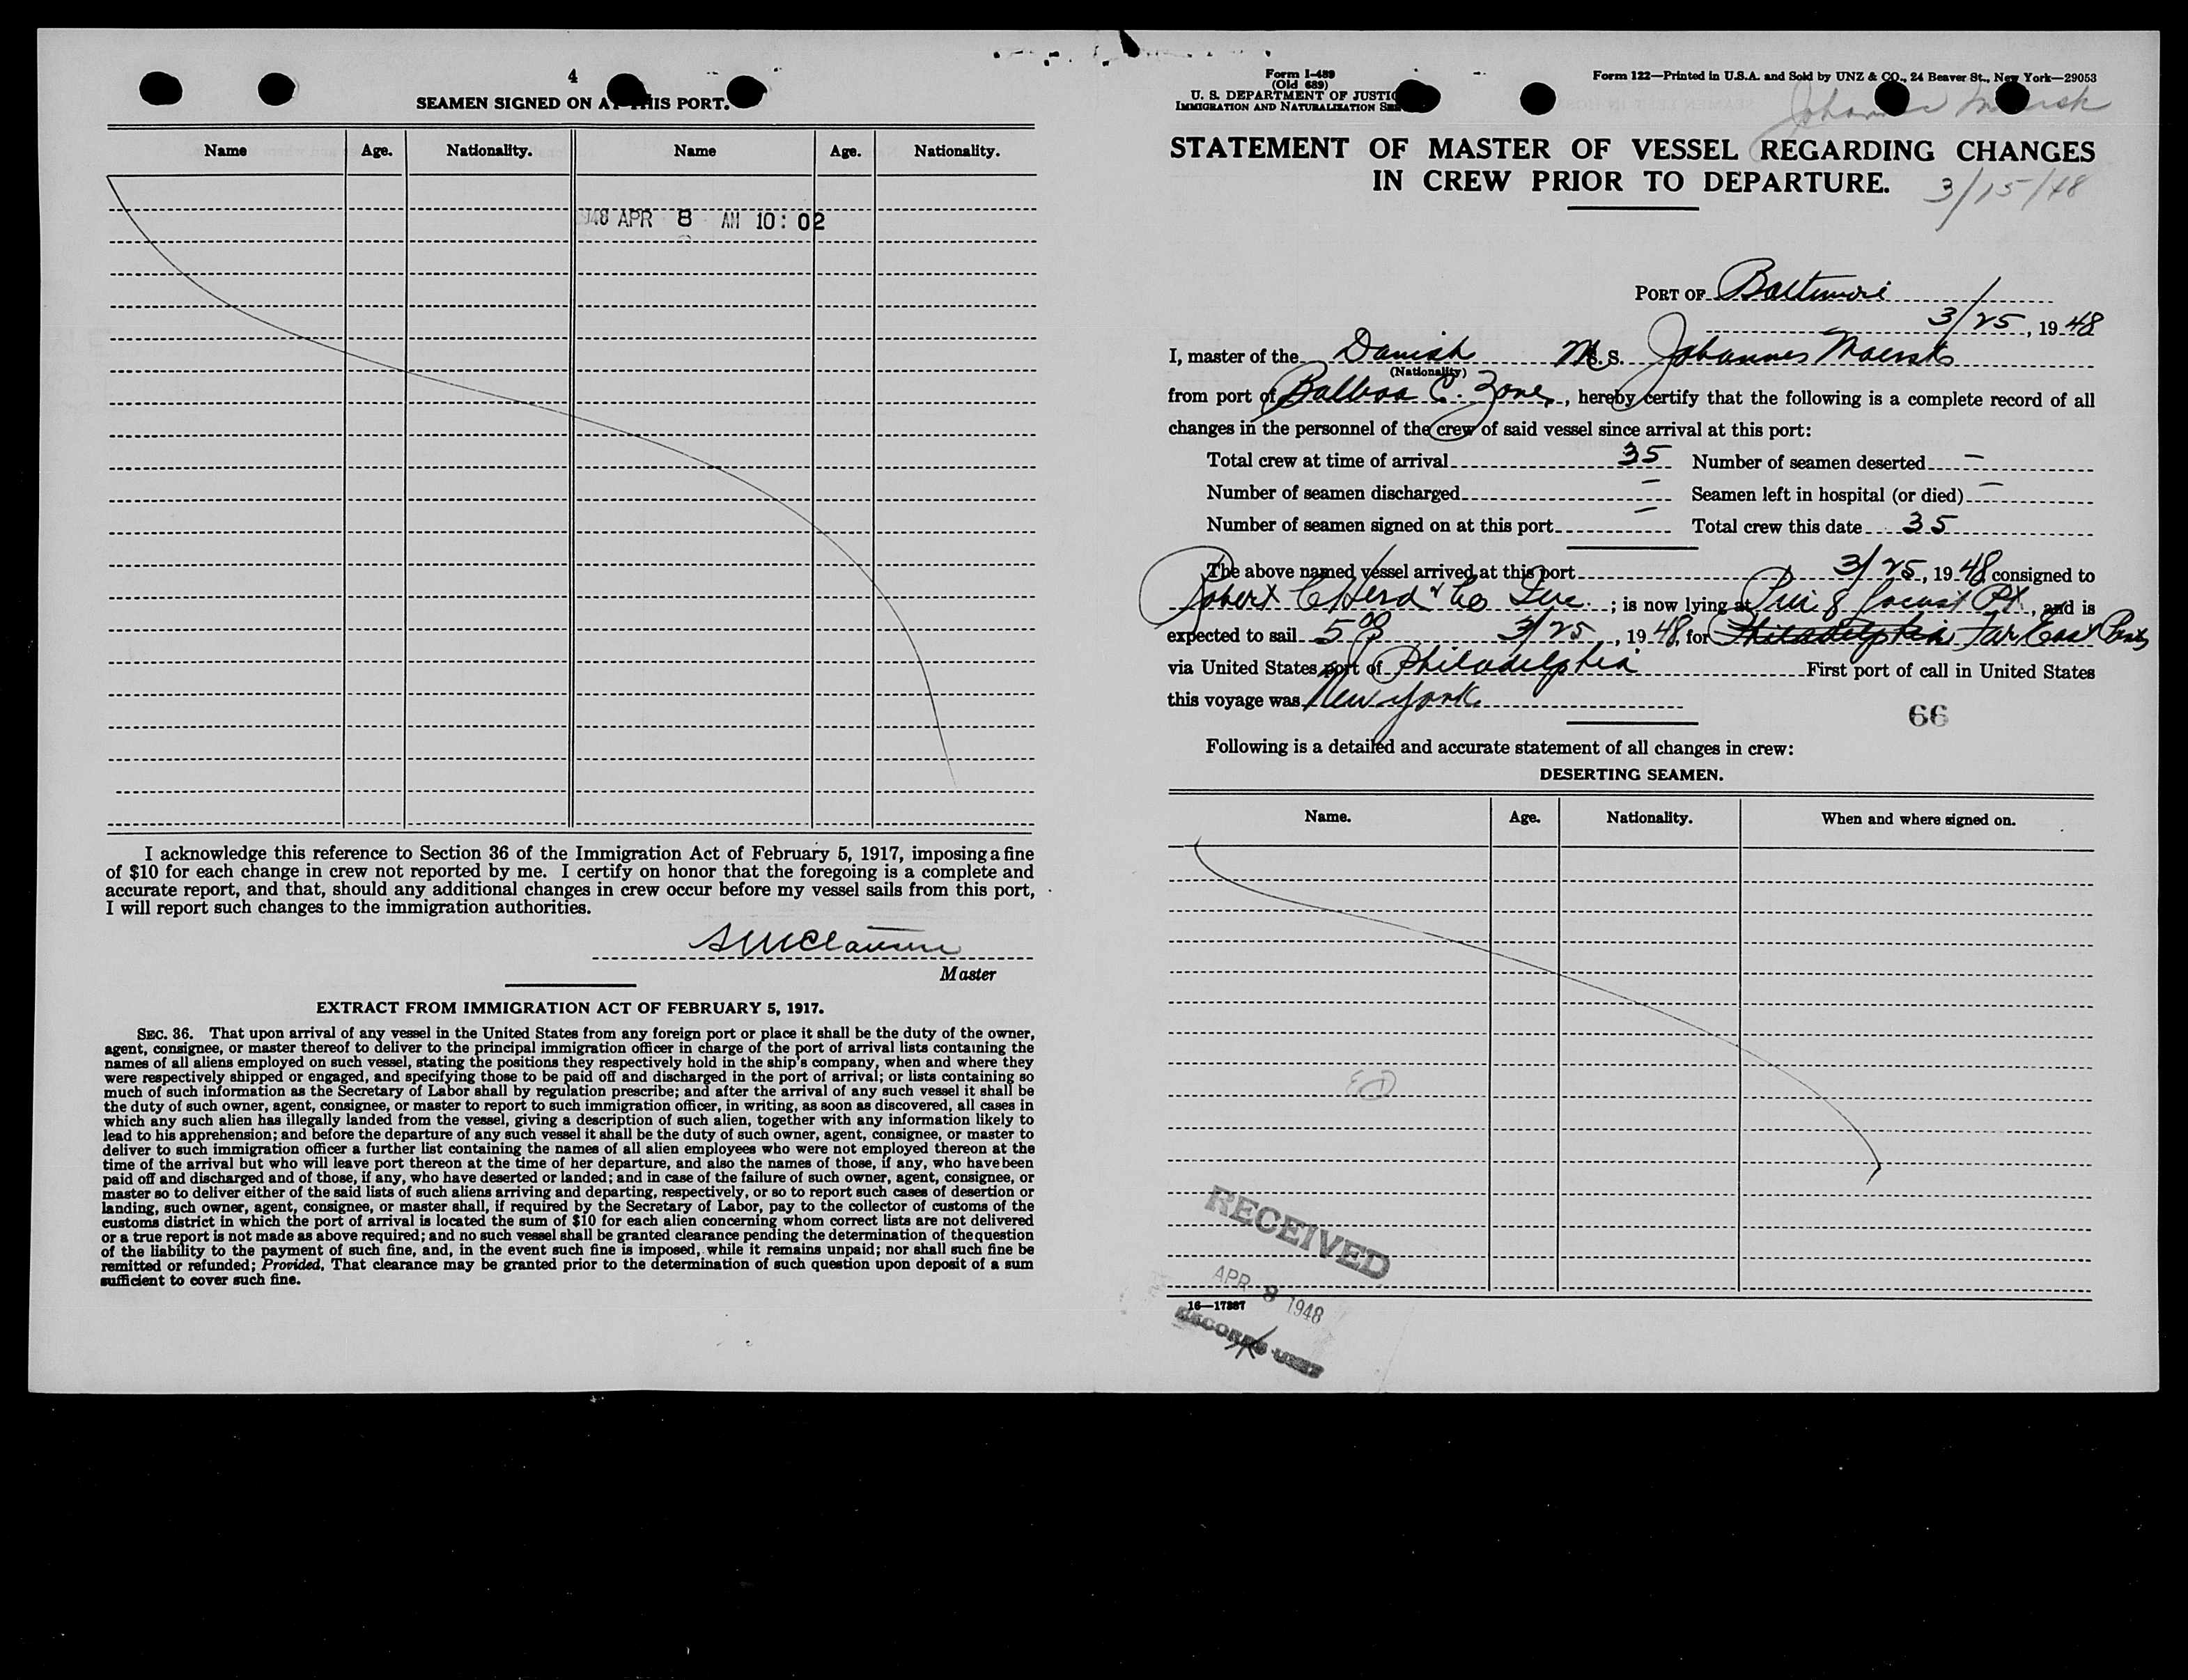 4
SEAMEN SIGNED ON AT THIS PORT.
Name Age. Nationality. Name Age. Nationality.
948 APR 8 AM 10:02
I acknowledge this reference to Section 36 of the Immigration Act of February 5, 1917, imposing a fine
of $10 for each change in crew not reported by me. I certify on honor that the foregoing is a complete and
accurate report, and that, should any additional changes in crew occur before my vessel sails from this port,
I will report such changes to the immigration authorities.
Master
EXTRACT FROM IMMIGRATION ACT OF FEBRUARY 5, 1917.
SEC. 36. That upon arrival of any vessel in the United States from any foreign port or place it shall be the duty of the owner,
agent, consignee, or master thereof to deliver to the principal immigration officer in charge of the port of arrival lists containing the
names of all aliens employed on such vessel, stating the positions they respectively hold in the ship's company, when and where they
were respectively shipped or engaged, and specifying those to be paid off and discharged in the port of arrival; or lists containing so
much of such information as the Secretary of Labor shall by regulation prescribe; and after the arrival of any such vessel it shall be
the duty of such owner, agent, consignee, or master to report to such immigration officer, in writing, as soon as discovered, all cases in
which any such alien has illegally landed from the vessel, giving a description of such alien, together with any information likely to
lead to his apprehension; and before the departure of any such vessel it shall be the duty of such owner, agent, consignee, or master to
deliver to such immigration officer a further list containing the names of all alien employees who were not employed thereon at the
time of the arrival but who will leave port thereon at the time of her departure, and also the names of those, if any, who have been
paid off and discharged and of those, if any, who have deserted or landed; and in case of the failure of such owner, agent, consignee, or
master so to deliver either of the said lists of such aliens arriving and departing, respectively, or so to report such cases of desertion or
landing, such owner, agent, consignee, or master shall, if required by the Secretary of Labor, pay to the collector of customs of the
customs district in which the port of arrival is located the sum of $10 for each alien concerning whom correct lists are not delivered
or a true report is not made as above required; and no such vessel shall be granted clearance pending the determination of the question
of the liability to the payment of such fine, and, in the event such fine is imposed, while it remains unpaid; nor shall such fine be
remitted or refunded; Provided, That clearance may be granted prior to the determination of such question upon deposit of a sum
sufficient to cover such fine.
Form I-489
(Old 689)
U. S. DEPARTMENT OF JUSTIC
IMMIGRATION AND NATURALIZATION SE
Form 122—Printed in U.S.A. and Sold by UNZ & CO., 24 Beaver St., New York—29053
Johannes Maersk
STATEMENT OF MASTER OF VESSEL REGARDING CHANGES
IN CREW PRIOR TO DEPARTURE.
3/15/48
PORT OF Baltimore
3/25, 1948
I, master of the Danish M.S. Johannes Maersk
(Nationality)
from port of Balboa C. Zone, hereby certify that the following is a complete record of all
changes in the personnel of the crew of said vessel since arrival at this port:
Total crew at time of arrival 35 Number of seamen deserted —
Number of seamen discharged — Seamen left in hospital (or died) —
Number of seamen signed on at this port — Total crew this date 35
The above named vessel arrived at this port 3/25, 1948 consigned to
Robert C Herd & Co Inc. ; is now lying at Pier 8 Locust Pt, and is
expected to sail 5 00 3/25, 1948, for Philadelphia Far East Ports
via United States port of Philadelphia First port of call in United States
this voyage was New York
66
Following is a detailed and accurate statement of all changes in crew:
DESERTING SEAMEN.
Name. Age. Nationality. When and where signed on.
RECEIVED
APR 8 1948
16—17387
RECORDS UNIT